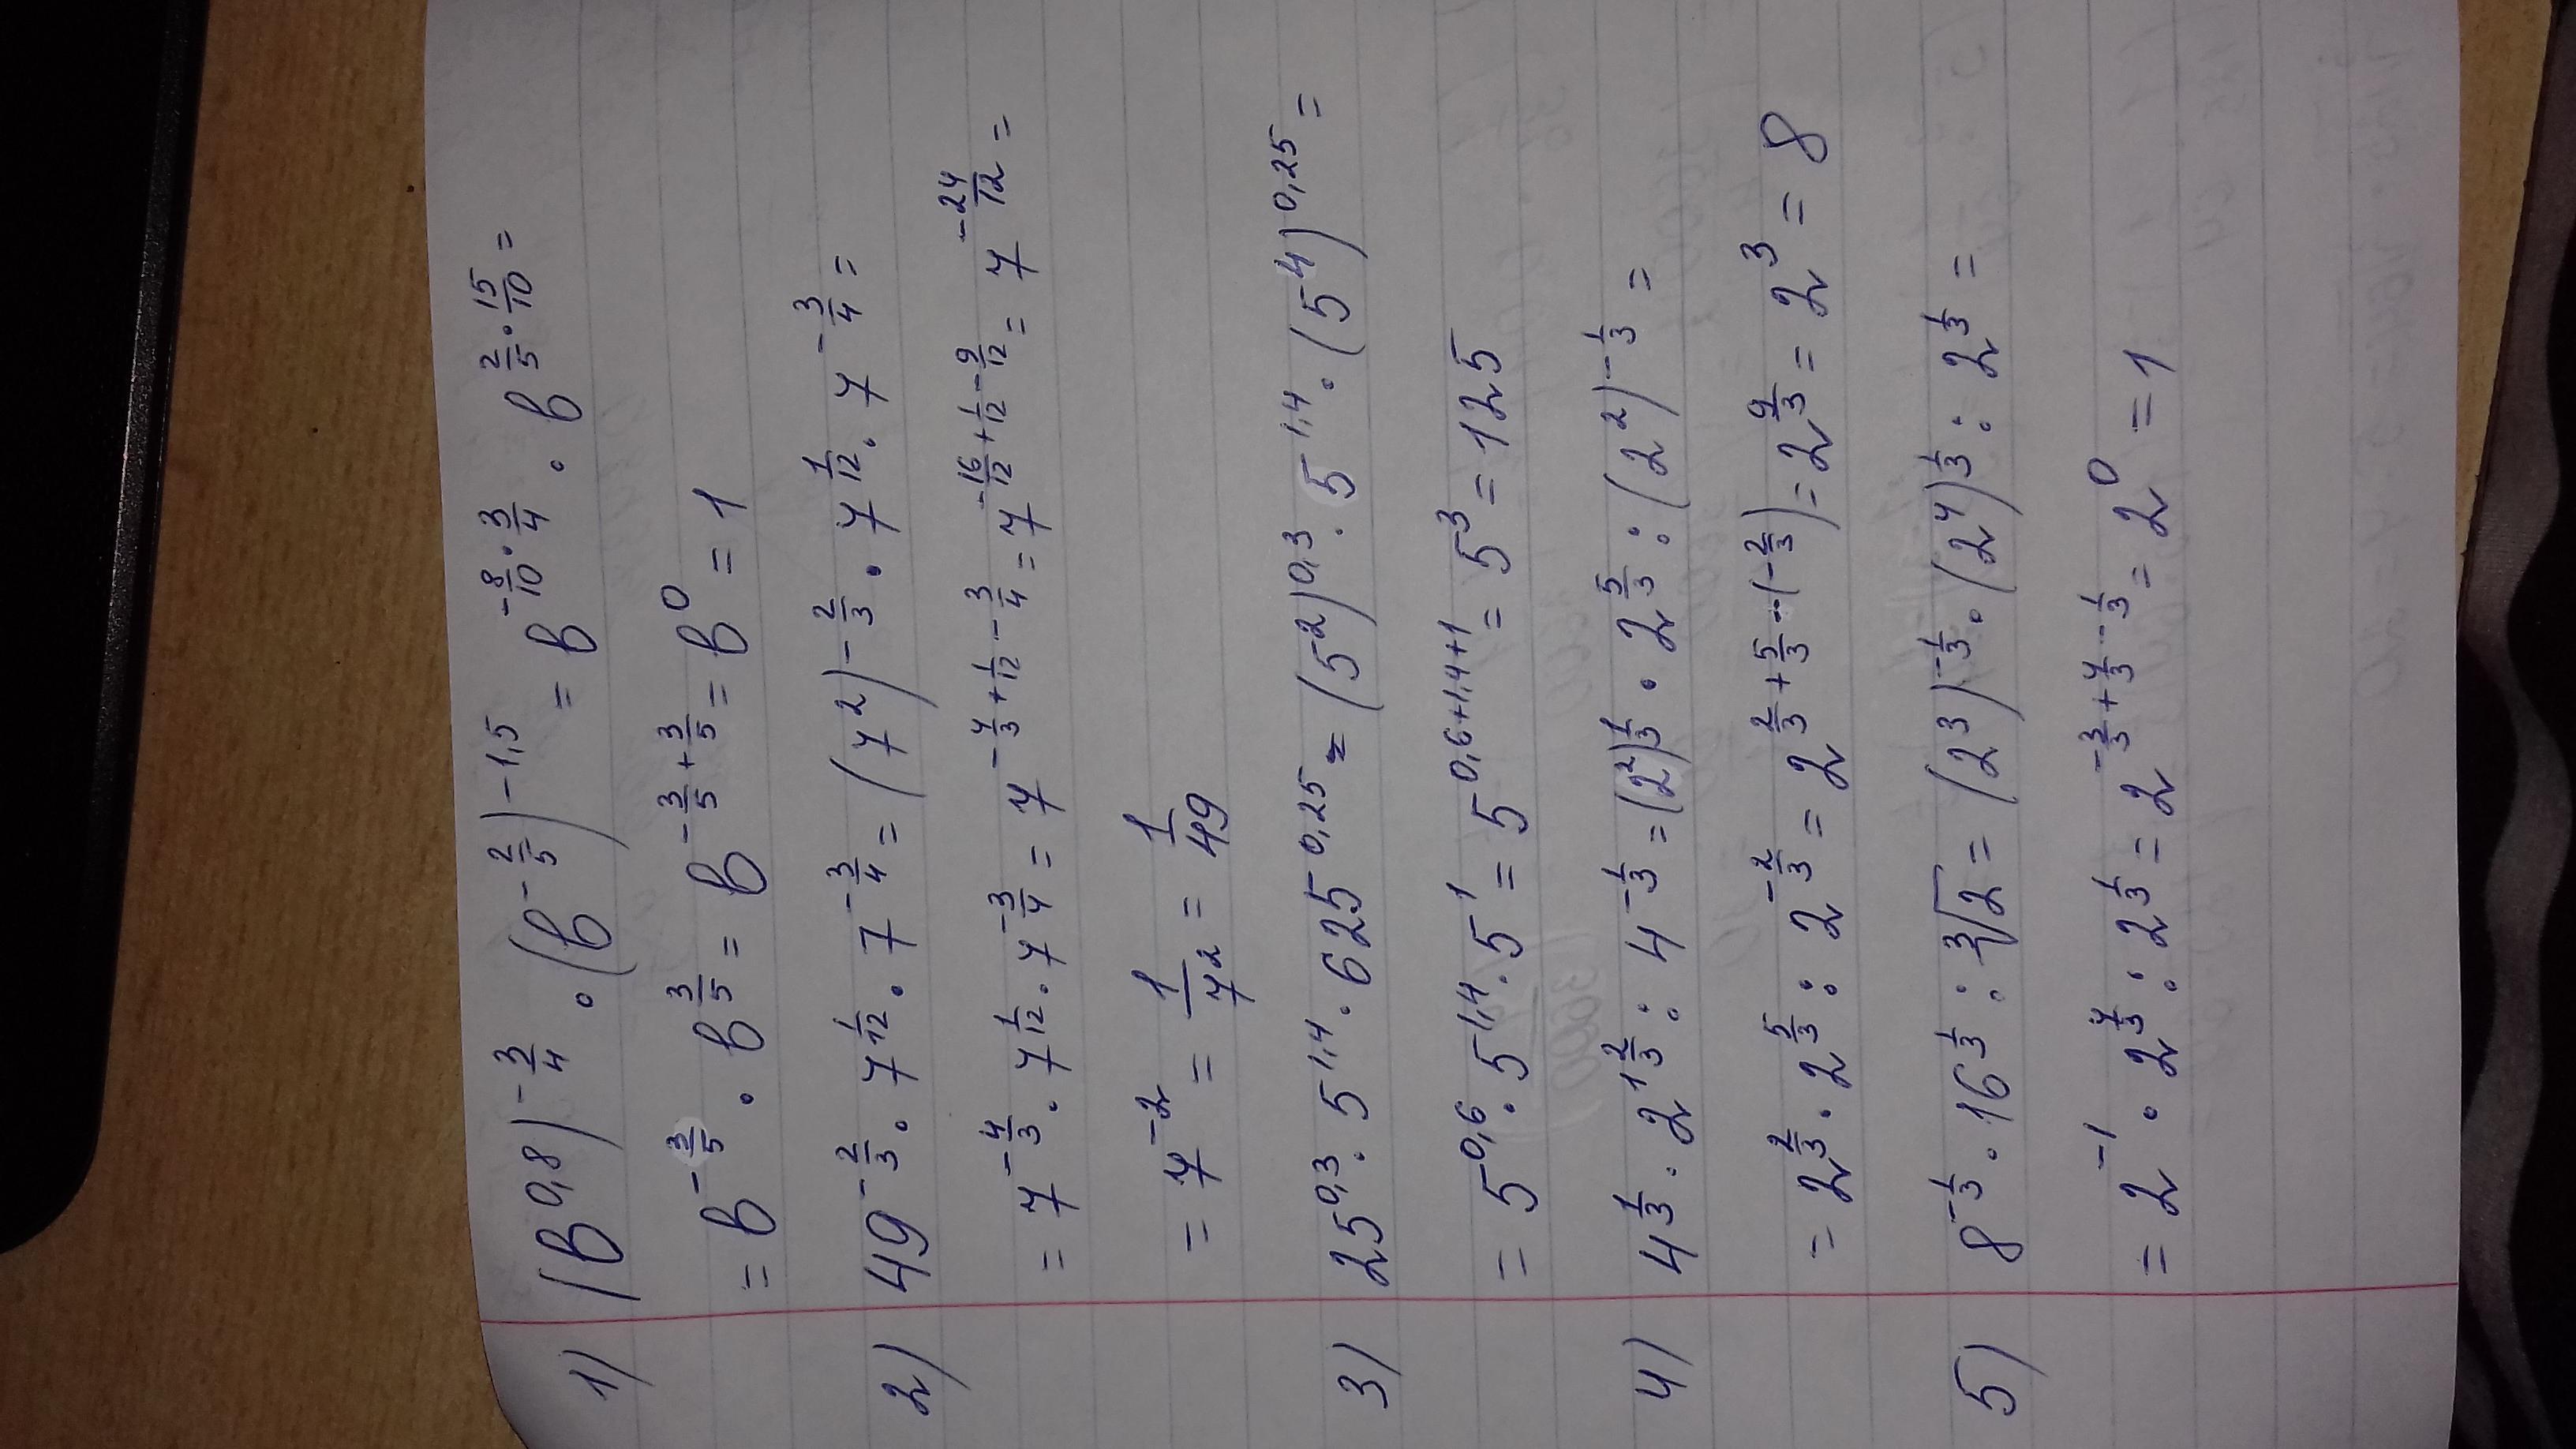 1) (b^0,8)^-3/4 · (b^-2/5)^-1,5 = b^-8/10·3/4 · b^2/5·15/10 =
= b^-3/5 · b^3/5 = b^-3/5+3/5 = b^0 = 1
2) 49^-2/3 · 7^1/12 · 7^-3/4 = (7^2)^-2/3 · 7^1/12 · 7^-3/4 =
= 7^-4/3 · 7^1/12 · 7^-3/4 = 7^-4/3+1/12-3/4 = 7^-16/12+1/12-9/12 = 7^-24/12 =
= 7^-2 = 1/7^2 = 1/49
3) 25^0,3 · 5^1,4 · 625^0,25 = (5^2)^0,3 · 5^1,4 · (5^4)^0,25 =
= 5^0,6 · 5^1,4 · 5^1 = 5^0,6+1,4+1 = 5^3 = 125
4) 4^1/3 · 2^1 2/3 : 4^-1/3 = (2^2)^1/3 · 2^5/3 : (2^2)^-1/3 =
= 2^2/3 · 2^5/3 : 2^-2/3 = 2^2/3+5/3-(-2/3) = 2^9/3 = 2^3 = 8
5) 8^-1/3 · 16^1/3 : ∛2 = (2^3)^-1/3 · (2^4)^1/3 : 2^1/3 =
= 2^-1 · 2^4/3 : 2^1/3 = 2^-3/3+4/3-1/3 = 2^0 = 1